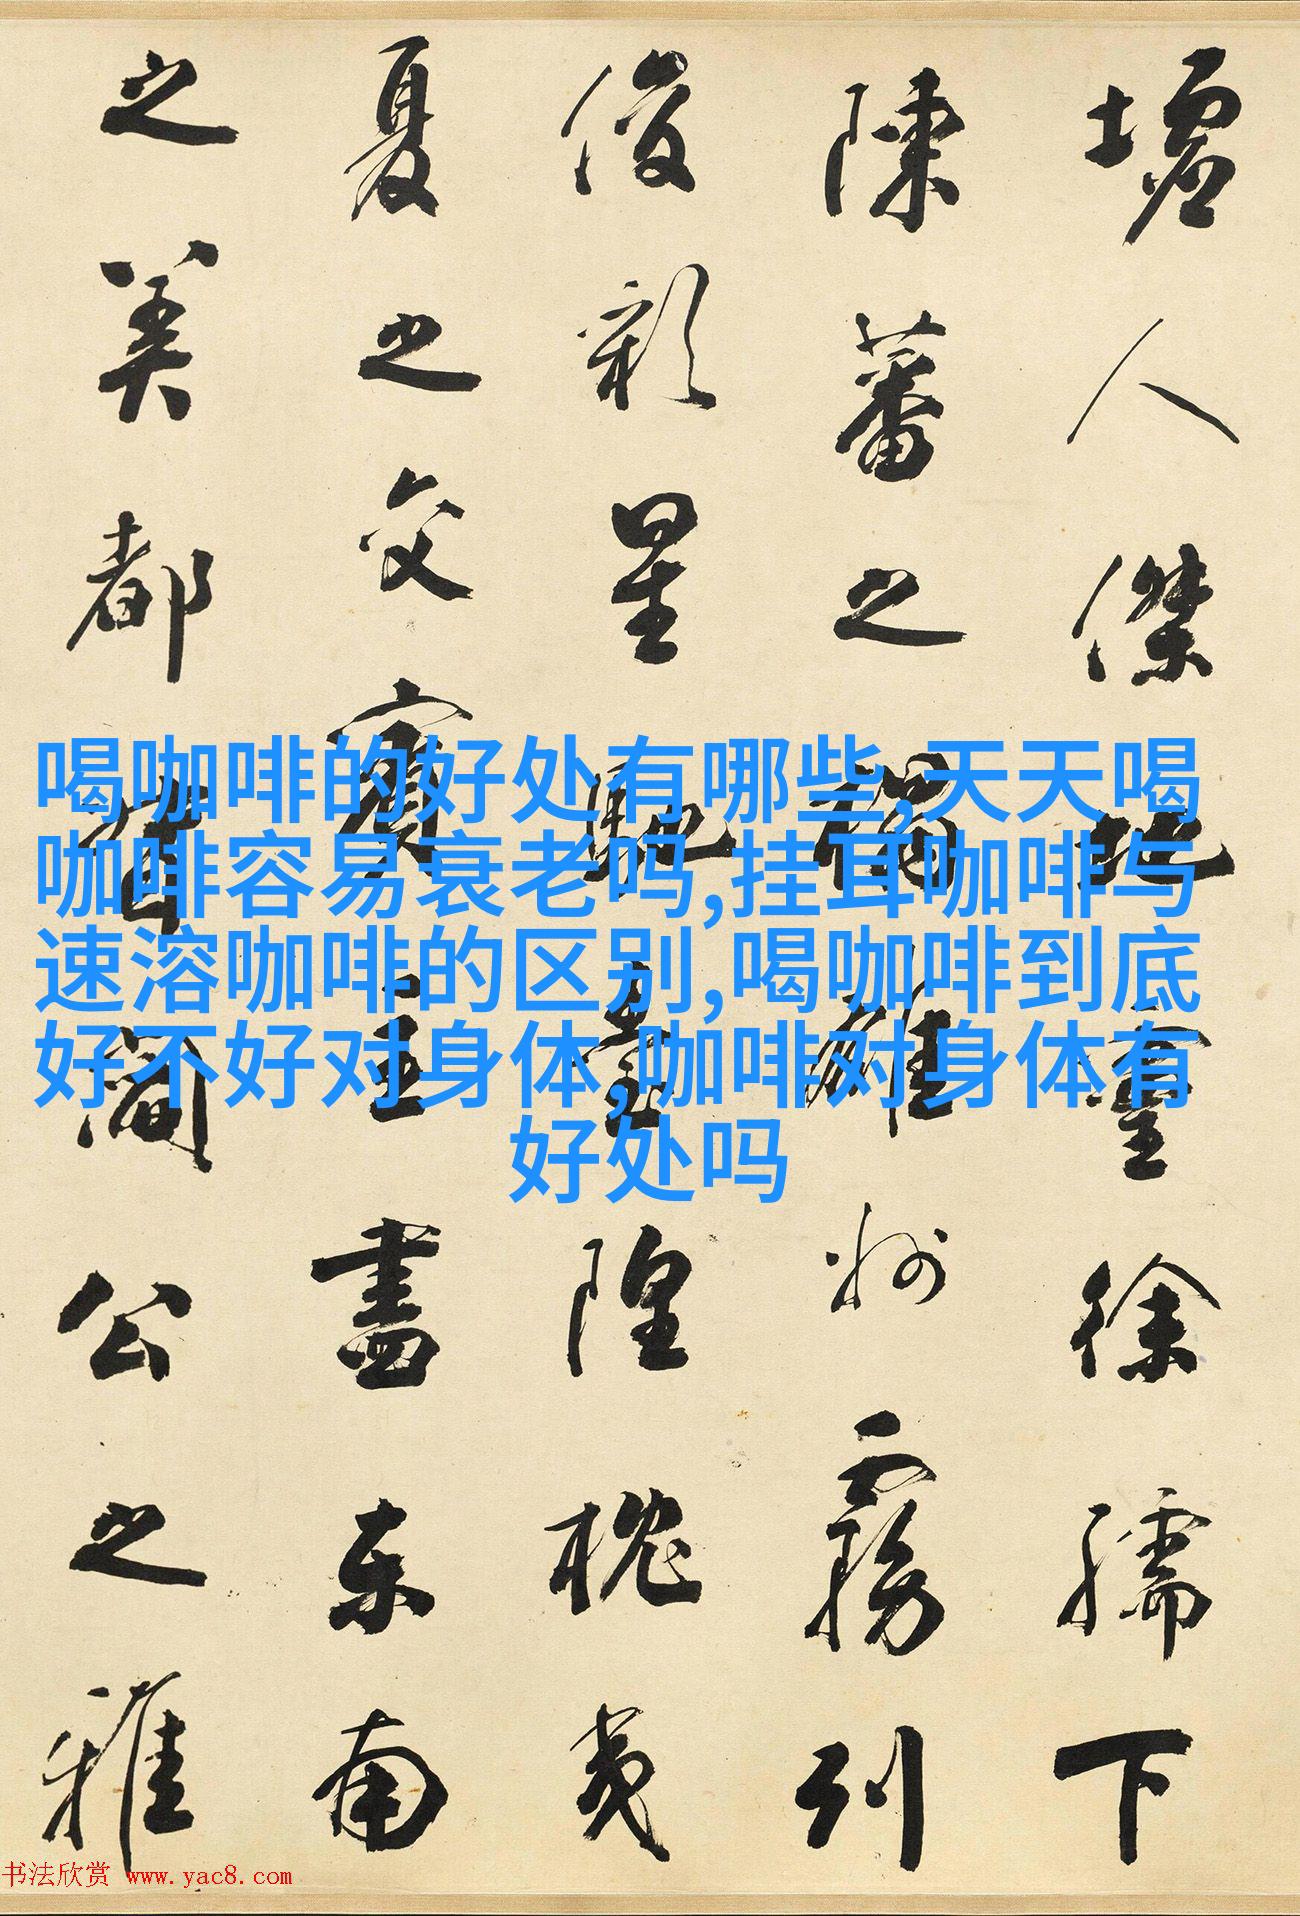 墟人傑地靈徐孺下
陳蕃之榻雄州霧列
俊彩星馳臺隍枕夷
夏之交賓主盡東南
之美都督閻公之雅
喝咖啡的好处有哪些,天天喝
咖啡容易衰老吗,挂耳咖啡与
速溶咖啡的区别,喝咖啡到底
好不好对身体,咖啡对身体有
好处吗
书法欣赏 www.yac8.com